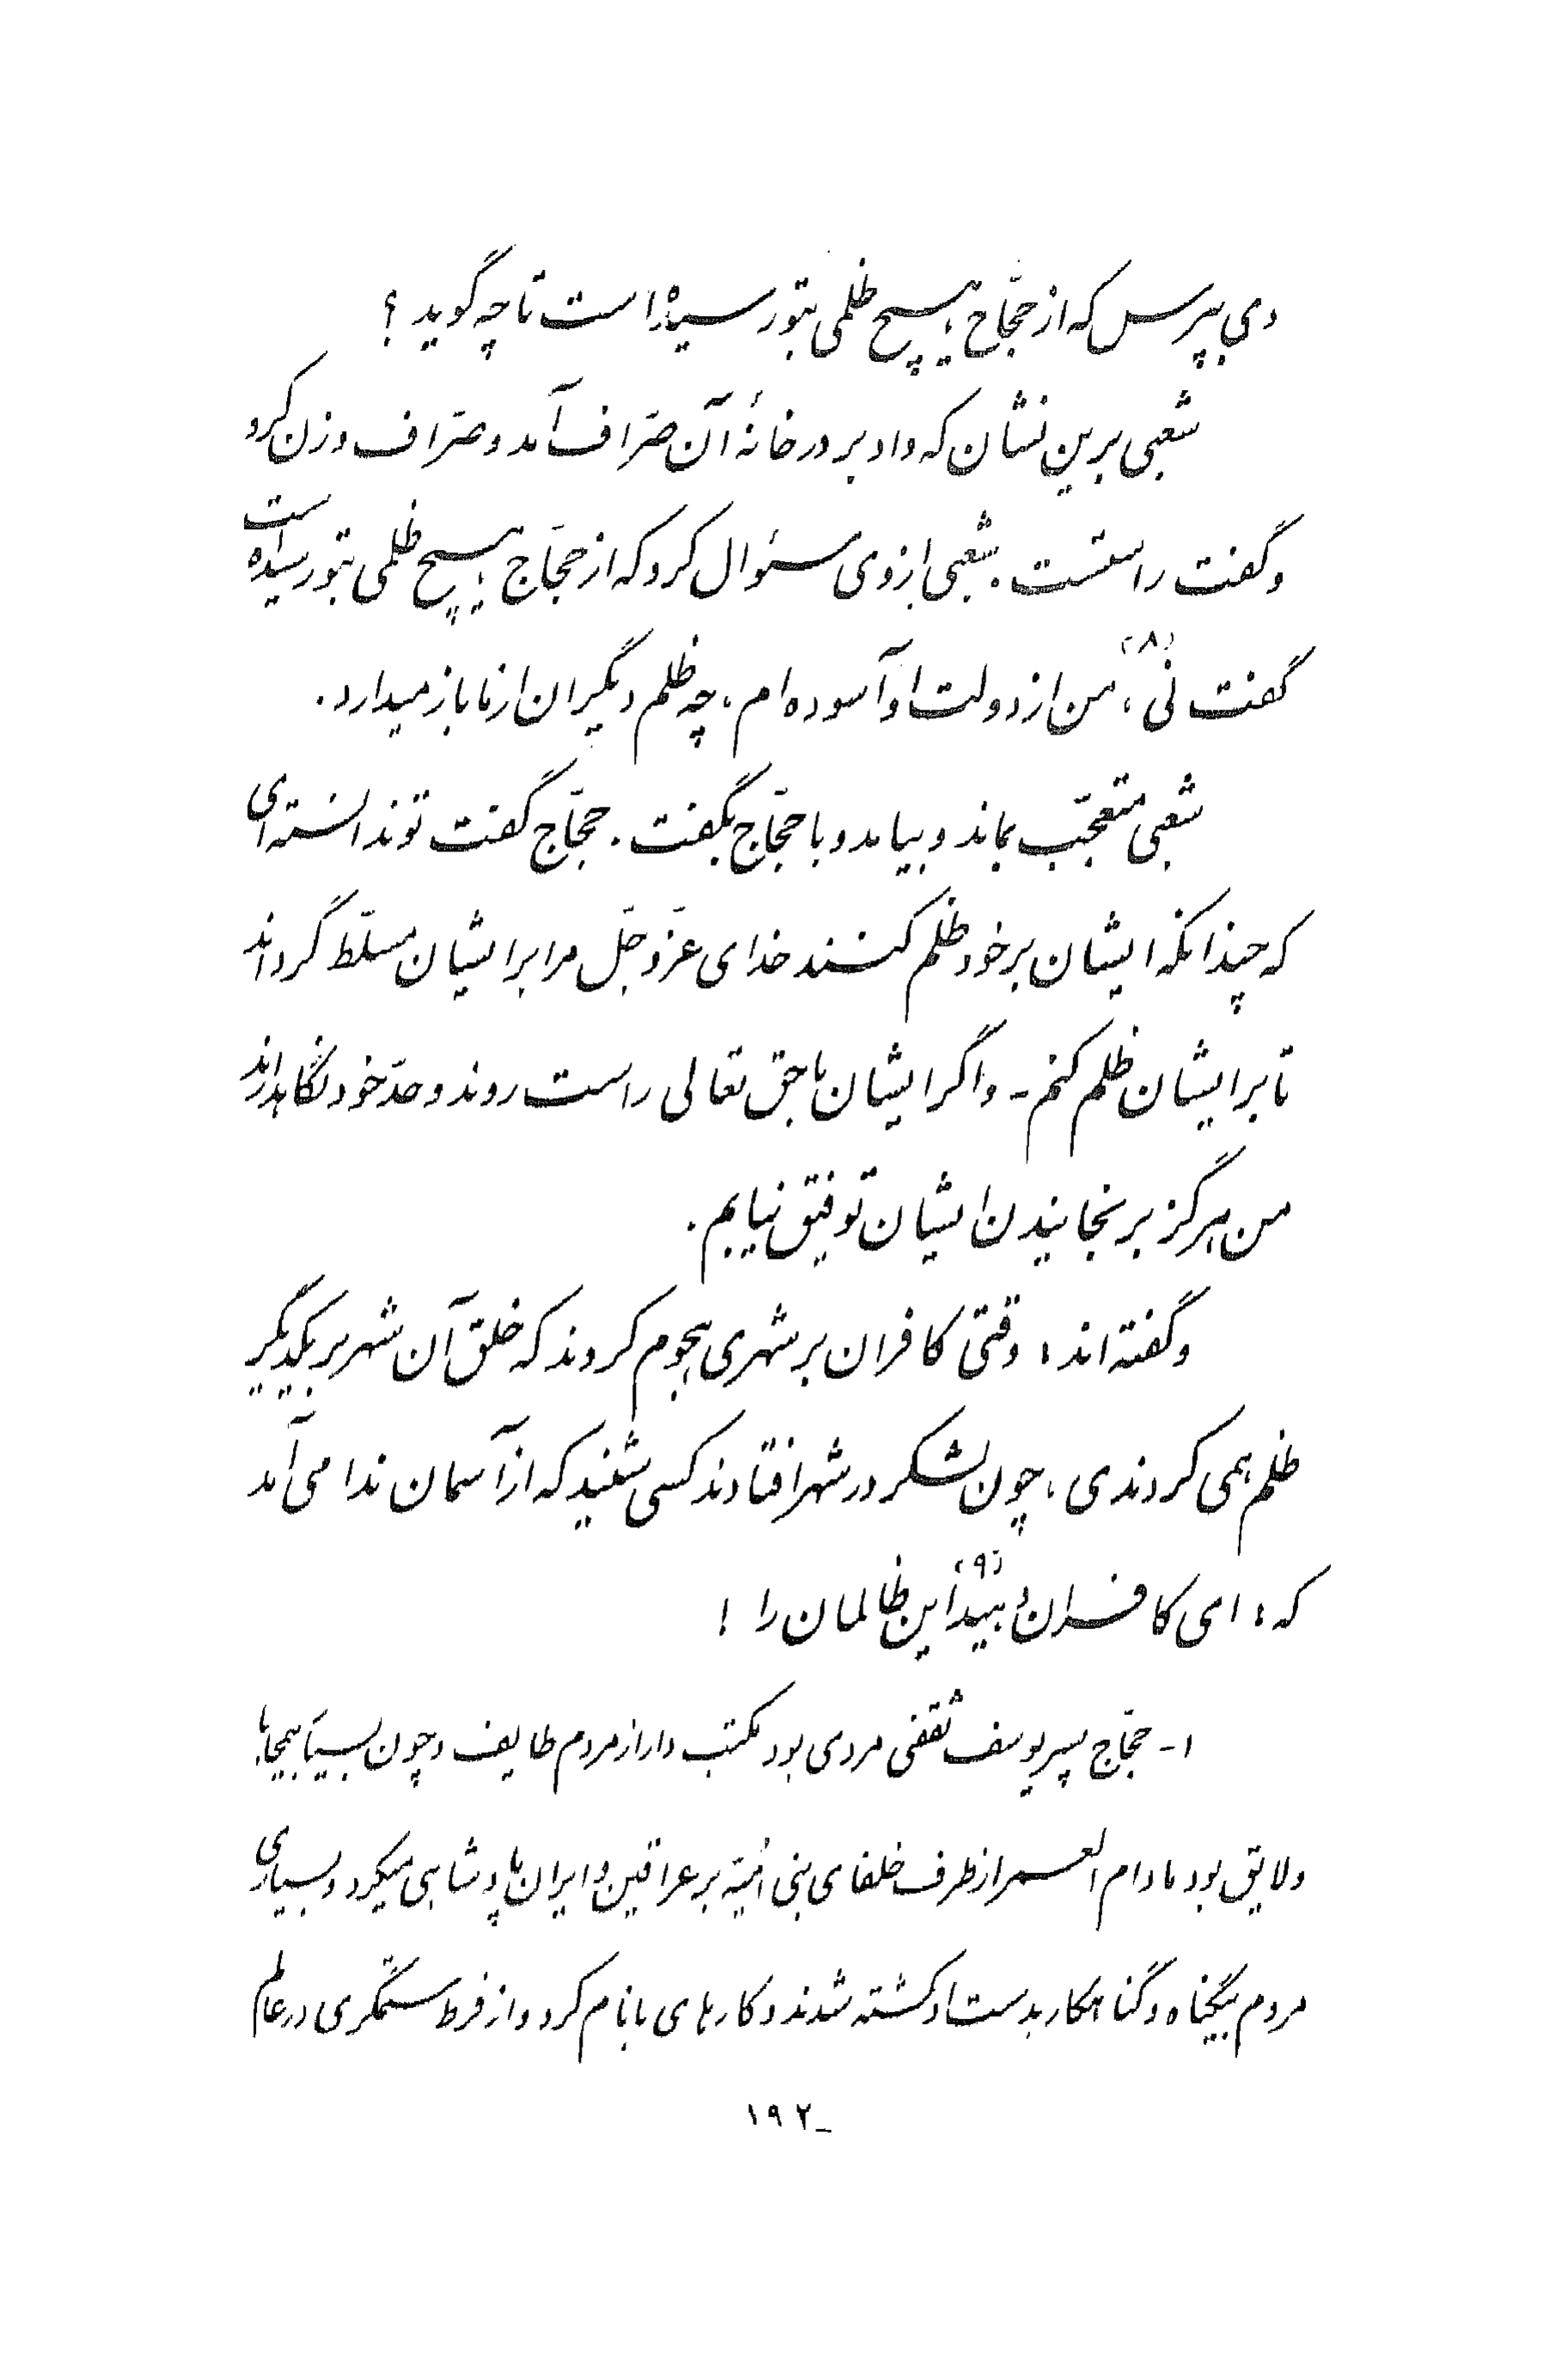 وی بپرس که از حجّاج هیچ ظلمی بتو رسیده است تا چه گوید ؟
شعبی برین نشان که داد بر در خانهٔ آن صرّاف آمد و صرّاف وزن کرد
و گفت راستست . شعبی از وی سئوال کرد که از حجّاج هیچ ظلمی بتو رسیده است
گفت نی (۸) ، من از دولت او آسوده ام ، چه ظلم دیگران از ما باز میدارد .
شعبی متعجّب بماند و بیامد و با حجّاج بگفت . حجّاج گفت تو ندانسته ای
که چندانکه ایشان بر خود ظلم کنند خدای عزّ و جلّ مرا بر ایشان مسلّط گرداند
تا بر ایشان ظلم کنم - و اگر ایشان با حق تعالی راست روند و حدّ خود نگاهدارند
من هرگز برنجانیدن ایشان توفیق نیابم .
و گفته اند : وقتی کافران بر شهری هجوم کردند که خلق آن شهر بر یکدیگر
ظلم همی کردندی ، چون لشکر در شهر افتادند کسی شنید که از آسمان ندا می آمد
که : ای کافران بزنید (۹) این ظالمان را !
۱ - حجّاج پسر یوسف ثقفی مردی بود مکتب دار از مردم طایف و چون بسیار بیمحابا
و لایق بود مادام العمر از طرف خلفای بنی امیّه بر عراقین و ایران پادشاهی میکرد و بسیاری
مردم بیگناه و گناهکار بدست او کشته شدند و کارهای بانام کرد و از فرط ستمگری در عالم
۱۹۲-